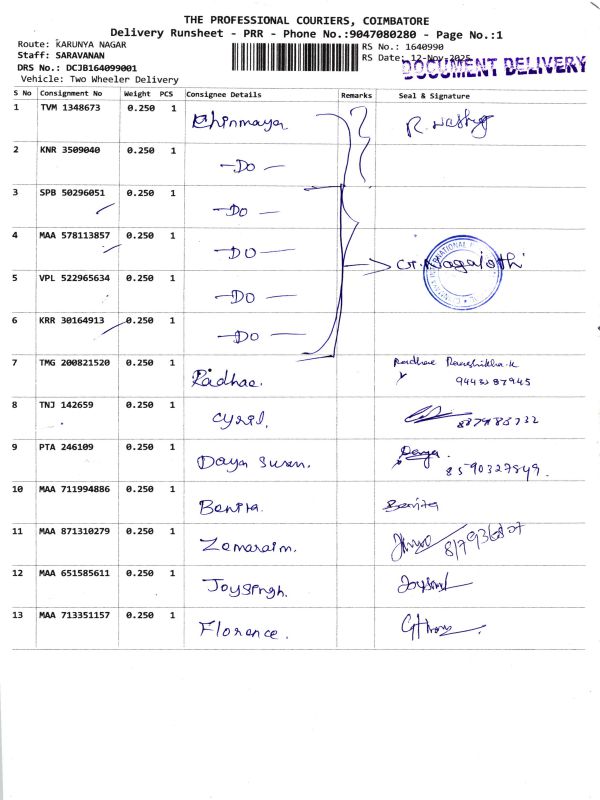 THE PROFESSIONAL COURIERS, COIMBATORE
Delivery Runsheet - PRR - Phone No.:9047080280 - Page No.:1
Route: KARUNYA NAGAR RS No.: 1640990
Staff: SARAVANAN RS Date: 12-Nov-2025
DRS No.: DCJB164099001 DOCUMENT DELIVERY
Vehicle: Two Wheeler Delivery
S No Consignment No Weight PCS Consignee Details Remarks Seal & Signature
1 TVM 1348673 0.250 1 Chinmaya
2 KNR 3509040 0.250 1 —Do—
3 SPB 50296051 0.250 1 —Do—
4 MAA 578113857 0.250 1 —Do— G. Nagajothi
5 VPL 522965634 0.250 1 —Do—
6 KRR 30164913 0.250 1 —Do—
7 TMG 200821520 1 Radhae. Radhae
0.250
8 TNJ 142659 0.250 1 Cyril.
9 PTA 246109 0.250 1 Daya Suran. Daya
8590327849.
10 MAA 711994886 0.250 1 Benita. Benita
11 MAA 871310279 0.250 1
12 MAA 651585611 0.250 1 Joysingh.
13 MAA 713351157 0.250 1 Florence.